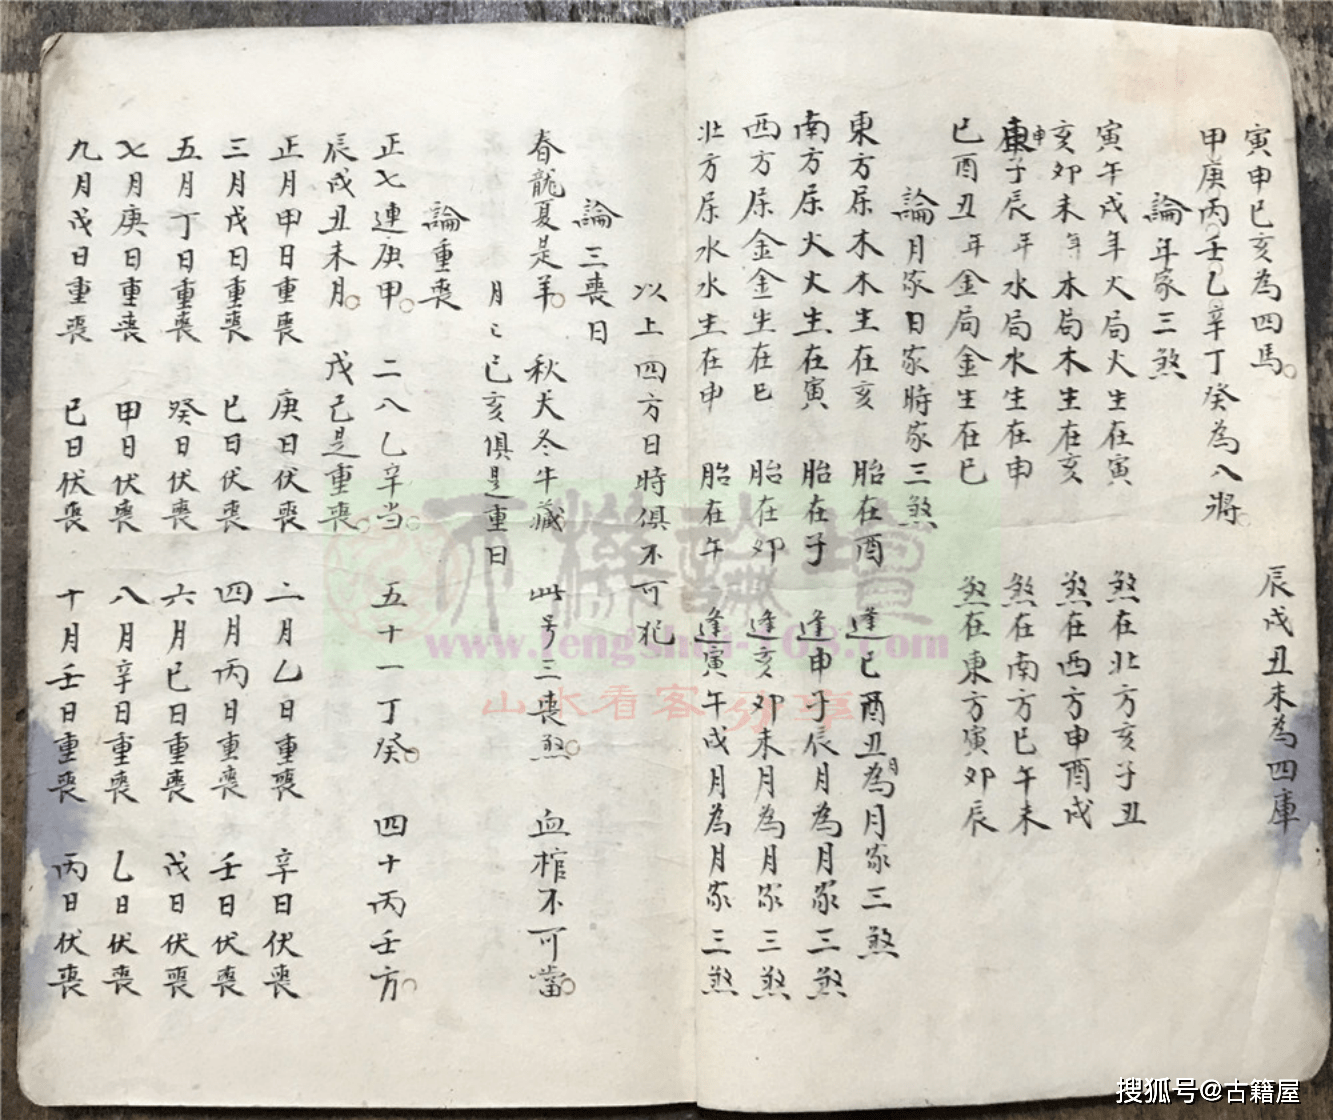 寅申巳亥為四馬。 辰戌丑未為四庫
甲庚丙壬乙辛丁癸為八將。
論年家三煞
寅午戌年火局火生在寅 煞在北方亥子丑
亥卯未年木局木生在亥 煞在西方申酉戌
申子辰年水局水生在申 煞在南方巳午未
巳酉丑年金局金生在巳 煞在東方寅卯辰
論月家日家時家三煞
東方屬木木生在亥 胎在酉 逢巳酉丑月為月家三煞
南方屬火火生在寅 胎在子 逢申子辰月為月家三煞
西方屬金金生在巳 胎在卯 逢亥卯未月為月家三煞
北方屬水水生在申 胎在午 逢寅午戌月為月家三煞
以上四方日時俱不可犯
論三喪日
春龍夏是羊。 秋犬冬牛藏 此号三喪煞。 血棺不可當。
月巳亥俱是重日
論重喪
正七連庚甲。 二八乙辛当。 五十一丁癸。 四十丙壬方。
辰戌丑未月。 戊己是重喪。
正月甲日重喪 庚日伏喪 二月乙日重喪 辛日伏喪
三月戊日重喪 巳日伏喪 四月丙日重喪 壬日伏喪
五月丁日重喪 癸日伏喪 六月巳日重喪 戊日伏喪
七月庚日重喪 甲日伏喪 八月辛日重喪 乙日伏喪
九月戊日重喪 巳日伏喪 十月壬日重喪 丙日伏喪
www.fengshui-168.com
山水看客分享
搜狐号@古籍屋